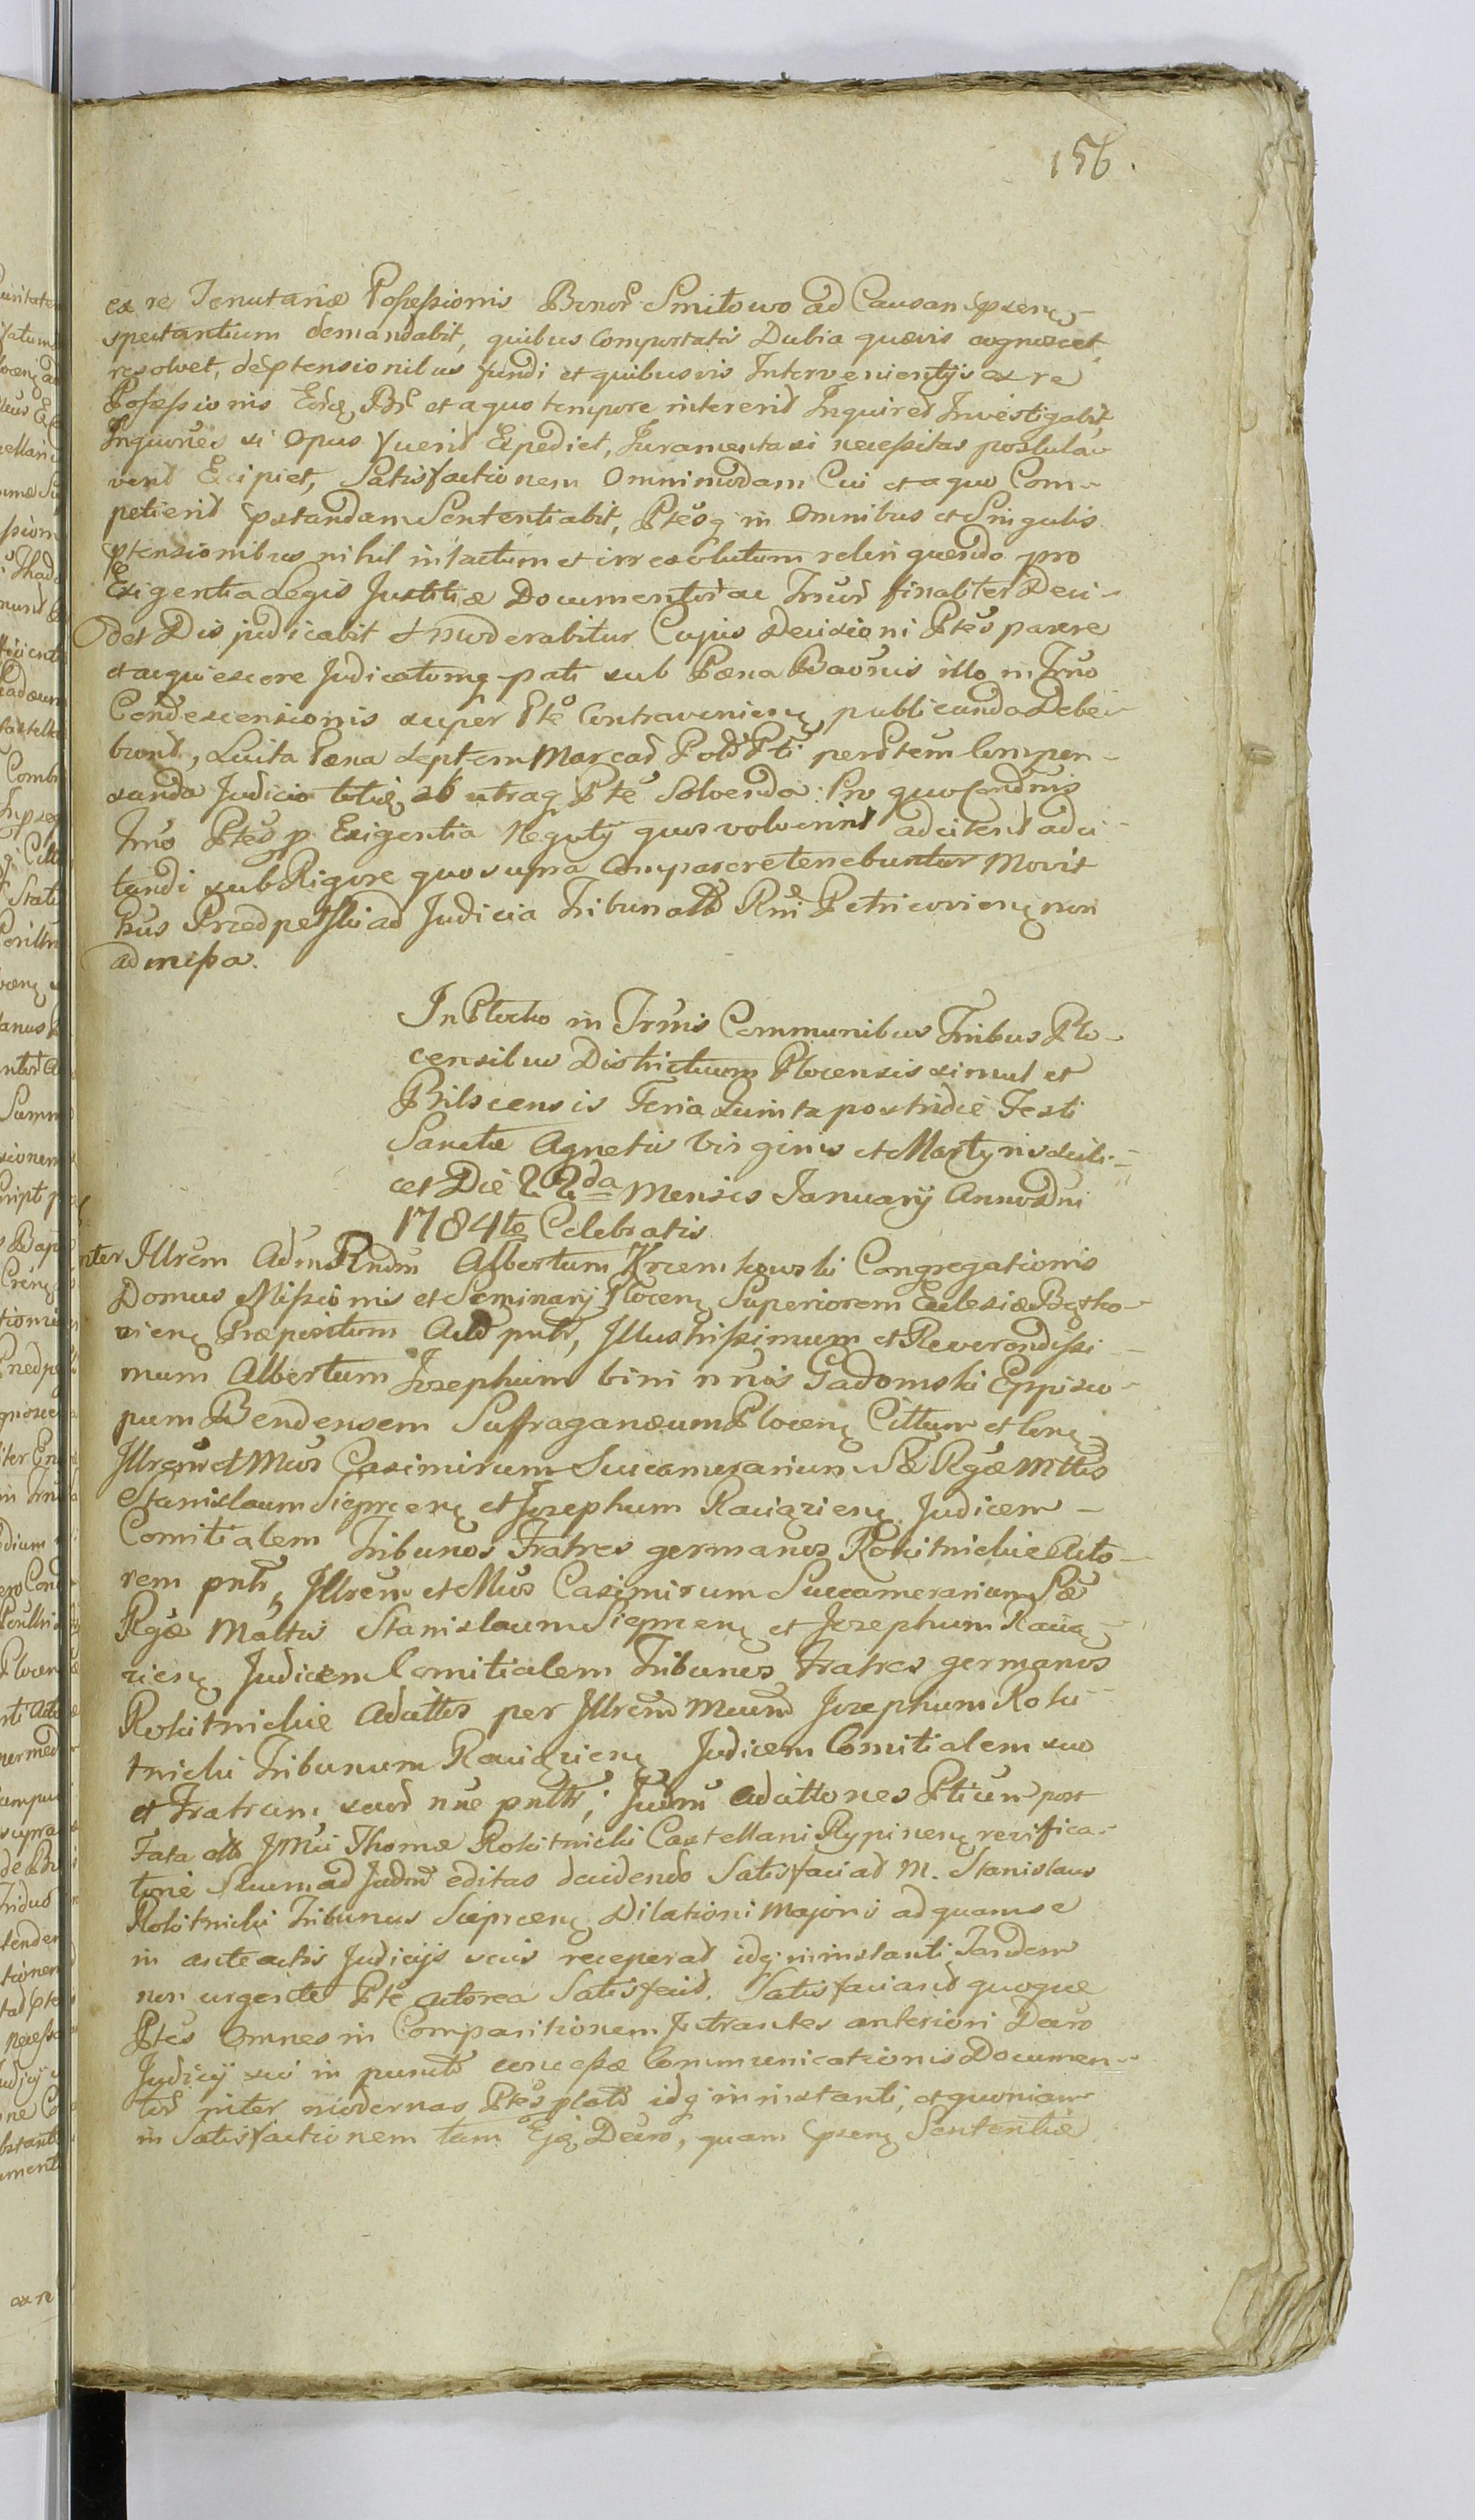 156.
ex re Tenutariæ Possessionis Bonor Smitowo ad Causam pseny
spectantium demandabit, quibus Comportatis Dubia quævis cognoscet,
resolvet, de ptensionibus fundi et quibusvis Intervenientijs ex re
Possessionis Eorḡ Br̄ et a quo tempore intererit Inquiret Investigabit
Inquiōnes si Opus fuerit Expediet, Juramenta si necessitas postula-
verit Excipiet, Satisfactionem Omnimodam Cui et a quo Com-
petierit pstandam Sententiabit, Ptesq in Omnibus et Singulis
ptensionibus nihil intactum et irresolutum relinquendo pro
Exigentia Legis Justitiæ Documentor ac Jnur finaliter Deci-
det Dis judicabit et moderabitur Cujus Decisioni Ptes parere
et acquiescere Judicatumq pati sub Pæna Baōnis illo in Trno
Condescensionis super Pte Contraveniene publicanda Debe-
bunt, Luita Pæna Septem Marcar Pold Pti per Ptem Compen-
sanda Judicio totie ab utraq Pte Solvenda: Pro quo Condnis
Trno Ptes p. Exigentia Negotÿ quos voluerint adcitent adci-
tandi sub Rigore quo supra Comparere tenebuntur Movit
hus Præd pe Illi ad Judicia Tribunalb Rni Petricoviene non
admissa.
In Plocko in Trnis Communibus Tribus Plo-
censibus Districtuum Plocensis simul et
Bilscensis Feria Quinta postridie Festi
Sanctæ Agnetis Virginis et Martyris scili-
cet Die 22da Mensis Januarij Anno Dni
1784to Celebratis
nter Illrem Adm Rndm Albertum Krzemkowski Congregationis
Domus Missionis et Seminarij Plocene Superiorem Eclesiæ Bętko-
viene Præpositum Actd pntr, Illustrissimum et Reverendissi-
mum Albertum Josephum bini nn̄is Gadomski Eppisco-
pum Bendensem Suffraganæum Plocene Cittum et Cone
Illres et Mcos Casimirum Succamerarium Sæ Rgæ Mttis
Stanislaum Sieprcene et Josephum Raciąziene Judicem
Comitialem Tribunos Fratres germanos Rokitnickie Acto-
rem pntr, Illres et Mcos Casimirum Succamerarium Sæ
Rgæ Mattis Stanislaum Sieprcene et Josephum Racią-
ziene Judicem Comitialem Tribunos Fratres germanos
Rokitnickie Adcittos per Illrem Mcum Josephum Roki-
tnicki Tribunum Raciąziene Judicem Comitialem suo
et Fratrum suor nne pnttr; Judm adcittōnes Ptium post
Fata olb JMci Thomæ Rokitnicki Castellani Rypinene reizifica-
tione Suum ad Judm editas decidendo Satisfaciat M. Stanislaus
Rokitnicki Tribunus Sieprcene Dilationi Majori ad quam se
in anteactis Judicijs suis receperat idq in instanti Tandem
non urgente Pte actorea Satisfecit. Satisfaciant quoque
Ptes Omnes in Comparitionem Intrantes anteriori Decro
Judicij sui in puncto concessæ Communicationis Documen-
tor inter modernas Ptes plato idq in instanti, et quoniam
in Satisfactionem tam Ejq Decro, quam psene Sententiæ